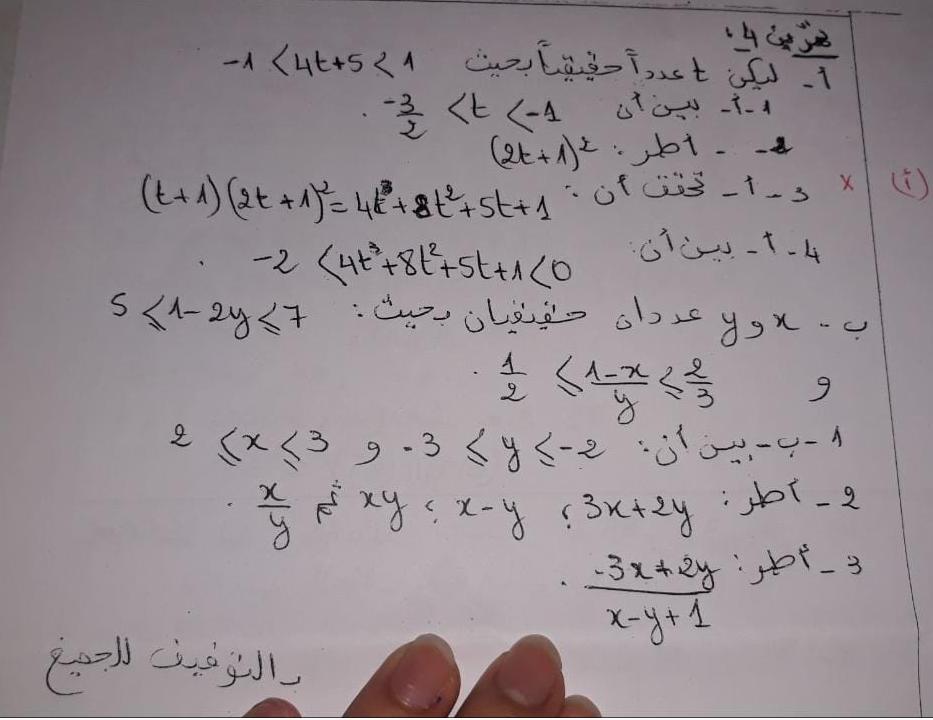 تمرين 4:
أ- ليكن t عدداً حقيقياً بحيث -1 < 4t+5 < 1
1-أ- بين أن -3/2 < t < -1 .
2- أطر: (2t+1)²
(أ) x 3-أ- تحقق أن: (t+1)(2t+1)² = 4t³+8t²+5t+1
4-أ- بين أن: -2 < 4t³+8t²+5t+1 < 0 .
ب- x و y عددان حقيقيان بحيث: 5 ⩽ 1-2y ⩽ 7
و 1/2 ⩽ (1-x)/y ⩽ 2/3 .
1-ب- بين أن: -3 ⩽ y ⩽ -2 و 2 ⩽ x ⩽ 3
2- أطر: 3x+2y ؛ x-y ؛ xy ثم x/y .
3- أطر: (-3x+2y)/(x-y+1) .
بالتوفيق للجميع